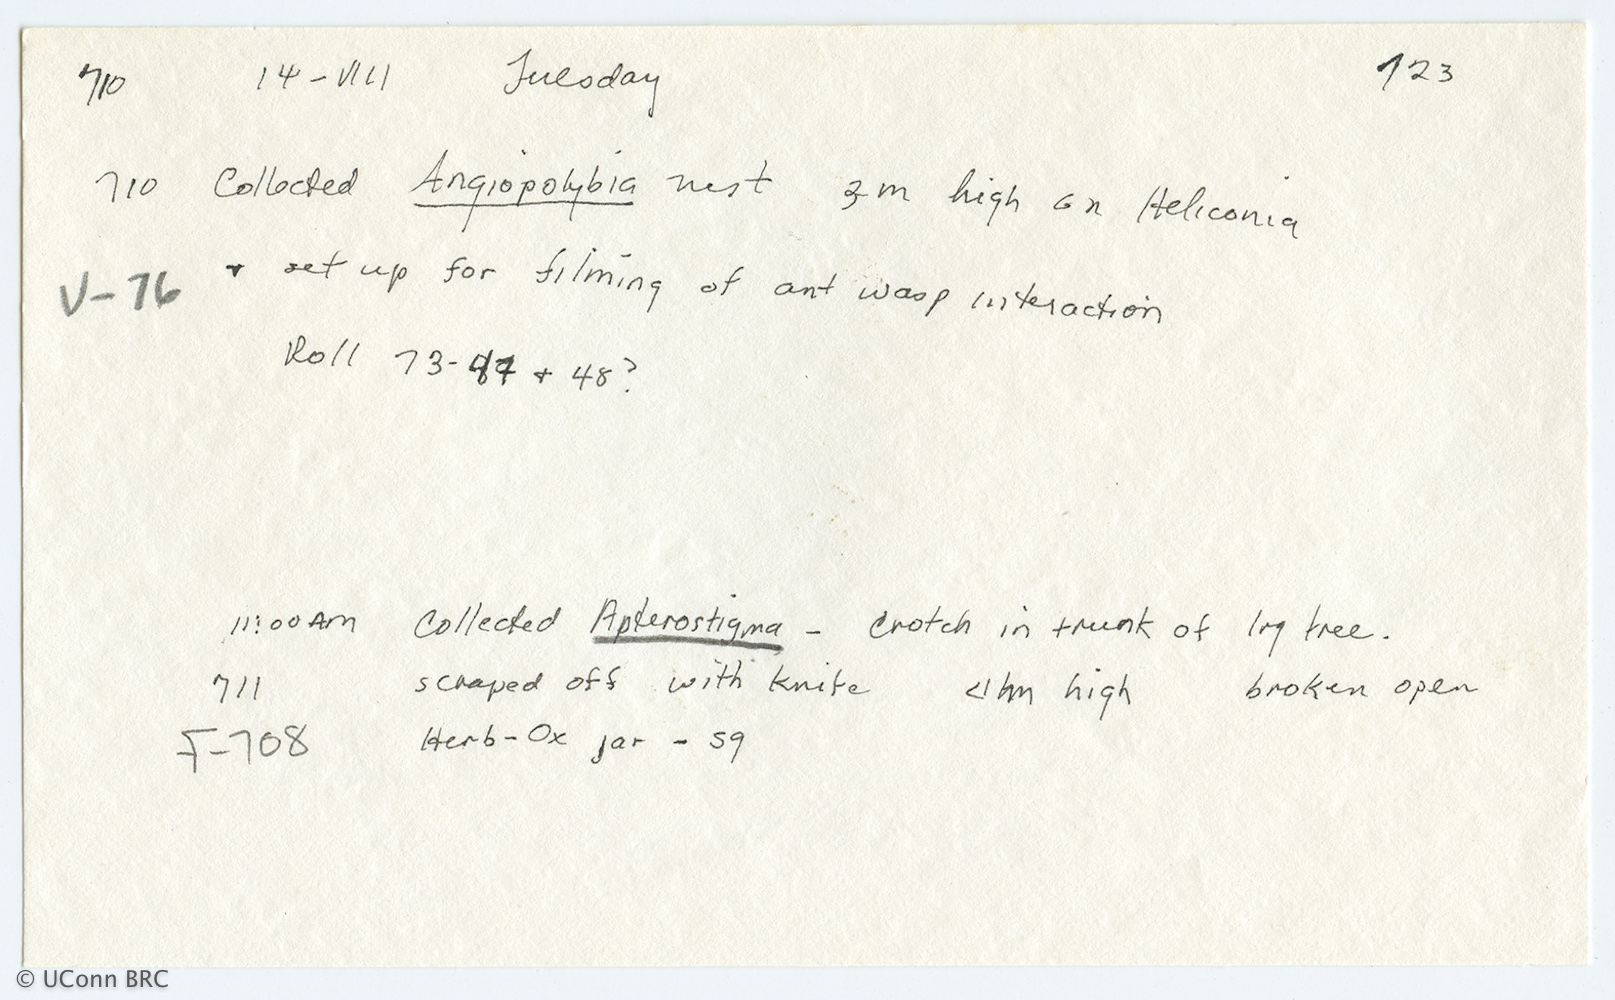 710 14-VIII Tuesday 123
710 Collected Angiopolybia nest 3m high on Heliconia
V-76 + set up for filming of ant wasp interaction
Roll 73-47 + 48?
11:00 Am Collected Apterostigma - crotch in trunk of lrg tree.
711 scraped off with knife <1m high broken open
F-708 Herb-Ox jar - sq
© UConn BRC